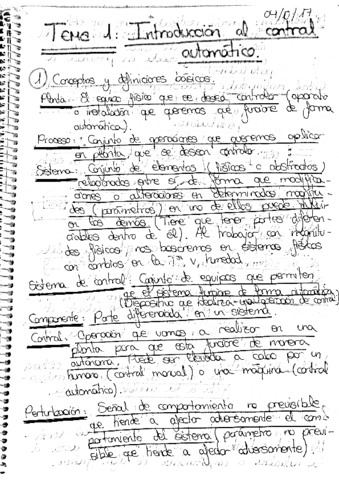 04/10/17
Tema 1: Introducción al control
automático.
1) Conceptos y definiciones básicos.
Planta: El equipo físico que se desea controlar (aparato
o instalación que queremos que funcione de forma
automática).
Proceso: Conjunto de operaciones que queremos aplicar
en planta, que se desean controlar.
Sistema: Conjunto de elementos (físicos o abstractos)
relacionados entre sí, de forma que modifica-
ciones o alteraciones en determinadas magnitu-
des (parámetros) en uno de ellos puede influir
en los demás. (Tiene que tener partes diferen-
ciables dentro de él). Al trabajar con magnitu-
des físicas, nos basaremos en sistemas físicos
con cambios en la Tª, v, humedad...
Sistema de control: Conjunto de equipos que permiten
que el sistema funcione de forma automática
(Dispositivo que idealiza una operación de control)
Componente: Parte diferenciada en un sistema.
Control: Operación que vamos a realizar en una
planta para que esta funcione de manera
autónoma. Puede ser llevada a cabo por un
humano (control manual) o una máquina (control
automático).
Perturbación: Señal de comportamiento no previsible,
que tiende a afectar adversamente el com-
portamiento del sistema (parámetro no previ-
sible que tiende a afectar adversamente)